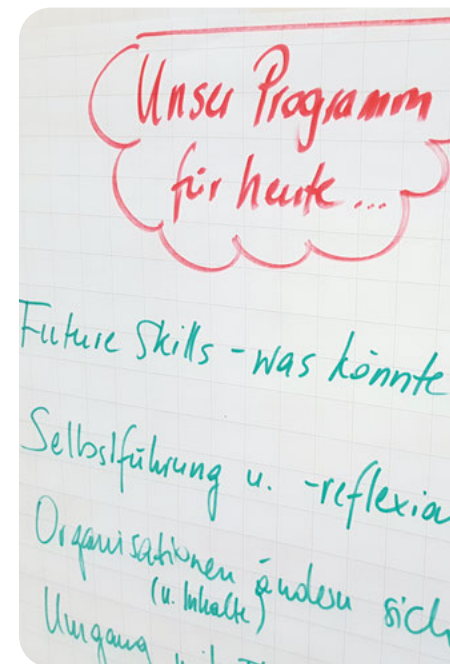 Unser Programm
für heute...
Future Skills - was könnte
Selbstführung u. -reflexion
Organisationen ändern sich
(u. Inhalte)
Umgang mit